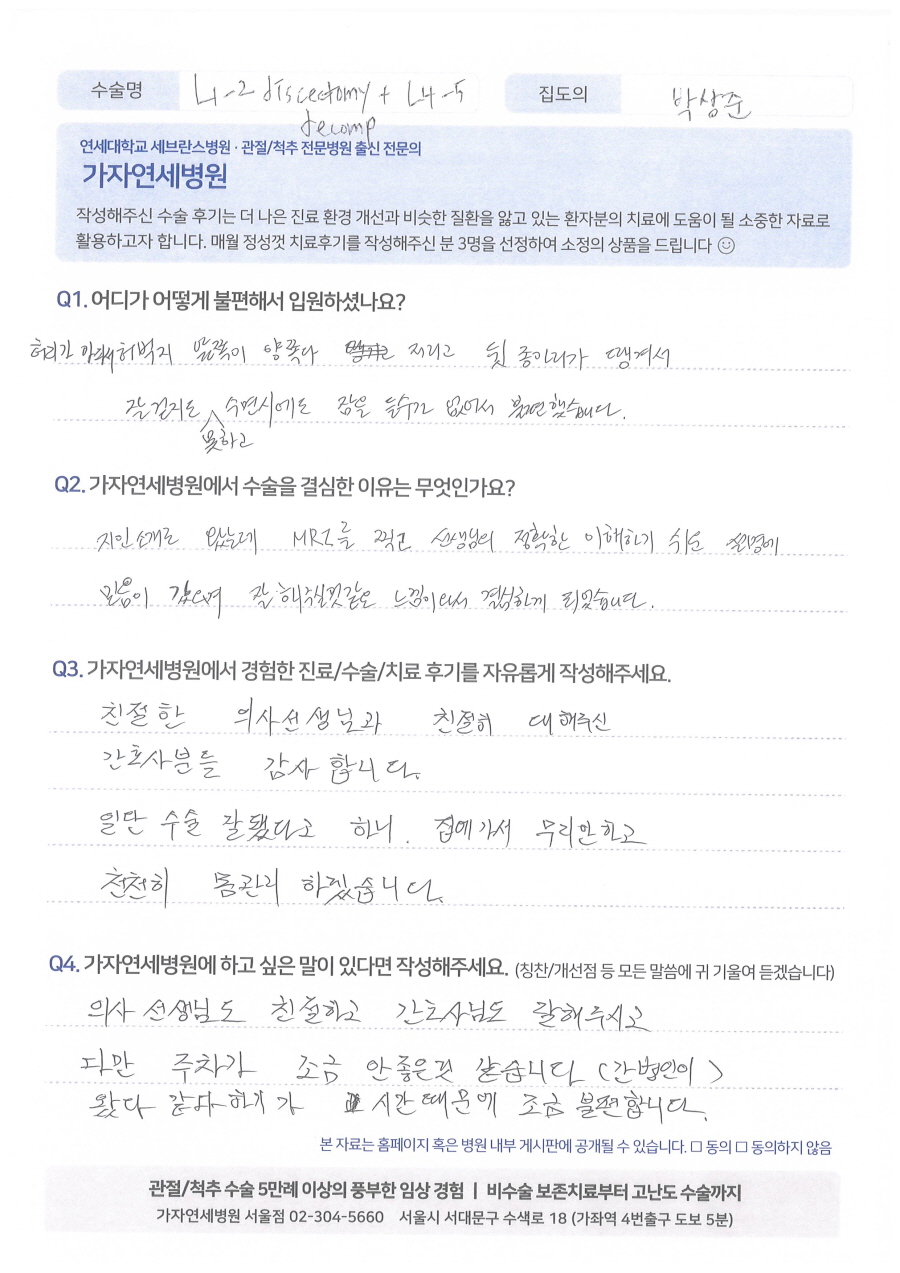 수술명 L1-2 discectomy + L4-5 decomp 집도의 박상준
연세대학교 세브란스병원 · 관절/척추 전문병원 출신 전문의
가자연세병원
작성해주신 수술 후기는 더 나은 진료 환경 개선과 비슷한 질환을 앓고 있는 환자분의 치료에 도움이 될 소중한 자료로
활용하고자 합니다. 매월 정성껏 치료후기를 작성해주신 분 3명을 선정하여 소정의 상품을 드립니다
Q1. 어디가 어떻게 불편해서 입원하셨나요?
허리가 아파서 허벅지 앞쪽이 양쪽다 저리고 뒷 종아리가 땡겨서
잘 걷지도 못하고 수면시에도 잠을 들수가 없어서 불편했습니다.
Q2. 가자연세병원에서 수술을 결심한 이유는 무엇인가요?
지인소개로 왔는데 MRI를 찍고 선생님의 정확한 이해하기 쉬운 설명에
믿음이 갔으며 잘 해주실것같은 느낌이와서 결심하게 되었습니다.
Q3. 가자연세병원에서 경험한 진료/수술/치료 후기를 자유롭게 작성해주세요.
친절한 의사선생님과 친절히 대해주신
간호사분들 감사 합니다.
일단 수술 잘됐다고 하니. 집에가서 무리안하고
천천히 몸관리 하겠습니다.
Q4. 가자연세병원에 하고 싶은 말이 있다면 작성해주세요. (칭찬/개선점 등 모든 말씀에 귀 기울여 듣겠습니다)
의사 선생님도 친절하고 간호사님도 잘해주시고
다만 주차가 조금 안좋은것 같습니다 (간병인이)
왔다 갔다하기가 시간때문에 조금 불편합니다.
본 자료는 홈페이지 혹은 병원 내부 게시판에 공개될 수 있습니다. □ 동의 □ 동의하지 않음
관절/척추 수술 5만례 이상의 풍부한 임상 경험 | 비수술 보존치료부터 고난도 수술까지
가자연세병원 서울점 02-304-5660 서울시 서대문구 수색로 18 (가좌역 4번출구 도보 5분)